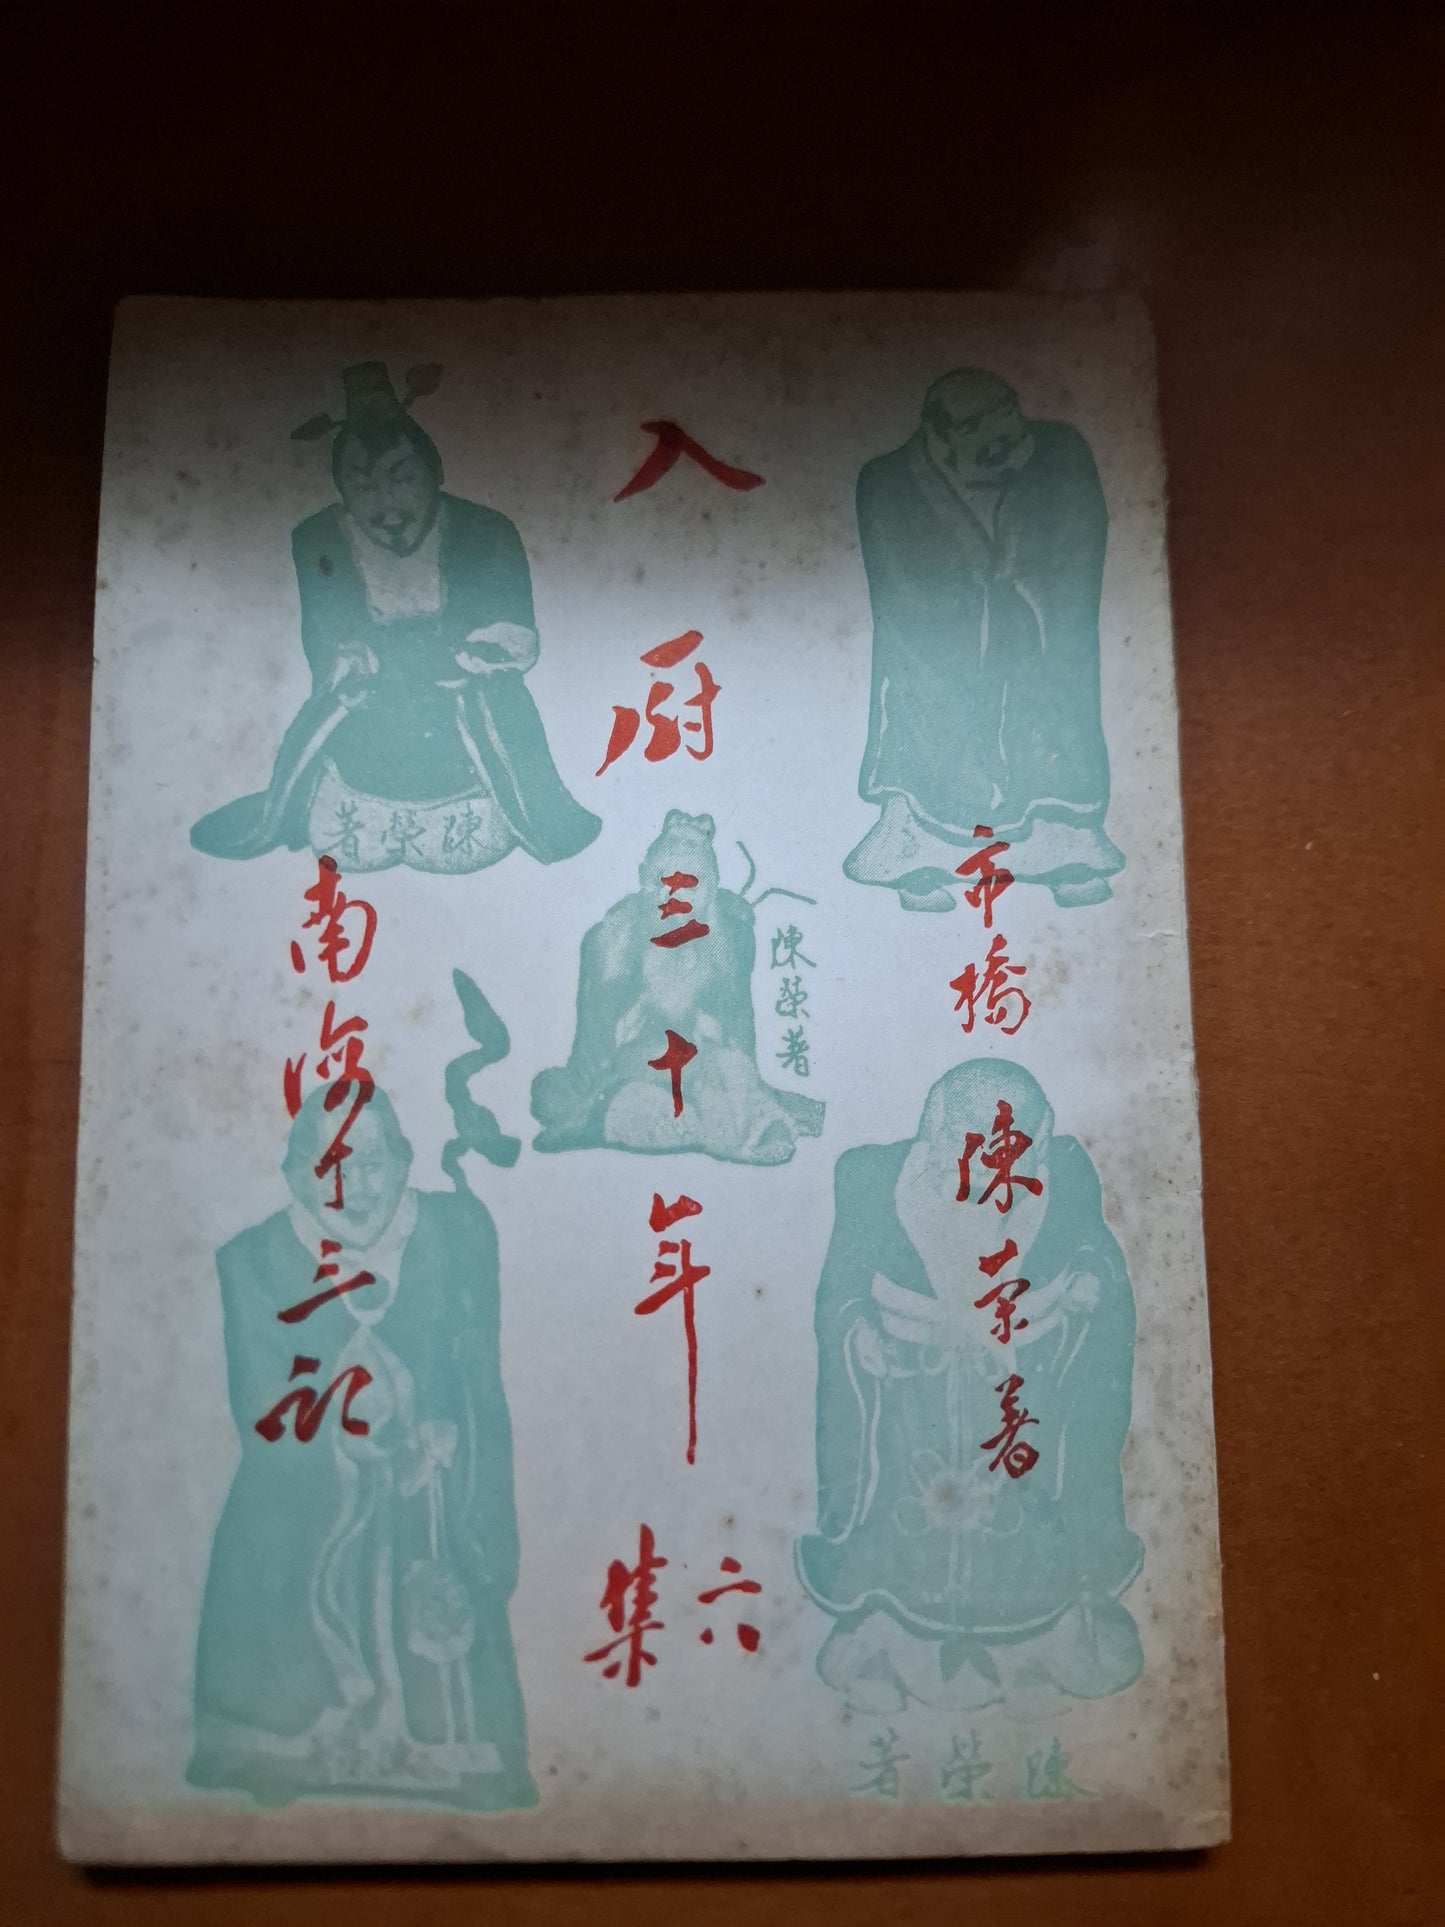 市橋 陳荣著
入廚三十年
六集
南海十三
陳榮著
陳榮著
陳榮著